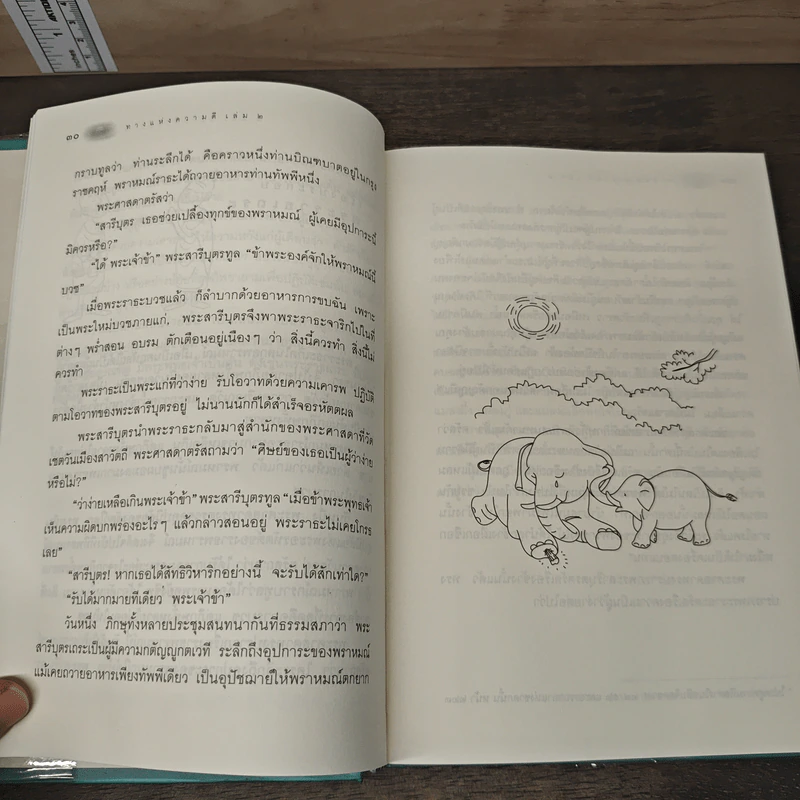 ๓๐ ทางแห่งความดี เล่ม ๒
กราบทูลว่า ท่านระลึกได้ คือคราวหนึ่งท่านบิณฑบาตอยู่ในกรุง
ราชคฤห์ พราหมณ์ราธะได้ถวายอาหารท่านทัพพีหนึ่ง
พระศาสดาตรัสว่า
“สารีบุตร เธอช่วยเปลื้องทุกข์ของพราหมณ์ ผู้เคยมีอุปการะนี้
มิควรหรือ?”
“ได้ พระเจ้าข้า” พระสารีบุตรทูล “ข้าพระองค์จักให้พราหมณ์นี้
บวช”
เมื่อพระราธะบวชแล้ว ก็ลำบากด้วยอาหารการขบฉัน เพราะ
เป็นพระใหม่บวชภายแก่, พระสารีบุตรจึงพาพระราธะจาริกไปในที่
ต่างๆ พร่ำสอน อบรม ตักเตือนอยู่เนืองๆ ว่า สิ่งนี้ควรทำ สิ่งนี้ไม่
ควรทำ
พระราธะเป็นพระแก่ที่ว่าง่าย รับโอวาทด้วยความเคารพ ปฏิบัติ
ตามโอวาทของพระสารีบุตรอยู่ ไม่นานนักก็ได้สำเร็จอรหัตตผล
พระสารีบุตรนำพระราธะกลับมาสู่สำนักของพระศาสดาที่วัด
เชตวันเมืองสาวัตถี พระศาสดาตรัสถามว่า “ศิษย์ของเธอเป็นผู้ว่าง่าย
หรือไม่?”
“ว่าง่ายเหลือเกินพระเจ้าข้า” พระสารีบุตรทูล “เมื่อข้าพระพุทธเจ้า
เห็นความผิดบกพร่องอะไรๆ แล้วกล่าวสอนอยู่ พระราธะไม่เคยโกรธ
เลย”
“สารีบุตร! หากเธอได้สัทธิวิหาริกอย่างนี้ จะรับได้สักเท่าใด?”
“รับได้มากมายทีเดียว พระเจ้าข้า”
วันหนึ่ง ภิกษุทั้งหลายประชุมสนทนากันที่ธรรมสภาว่า พระ
สารีบุตรเถระเป็นผู้มีความกตัญญูกตเวที ระลึกถึงอุปการะของพราหมณ์
แม้เคยถวายอาหารเพียงทัพพีเดียว เป็นอุปัชฌาย์ให้พราหมณ์ตกยาก